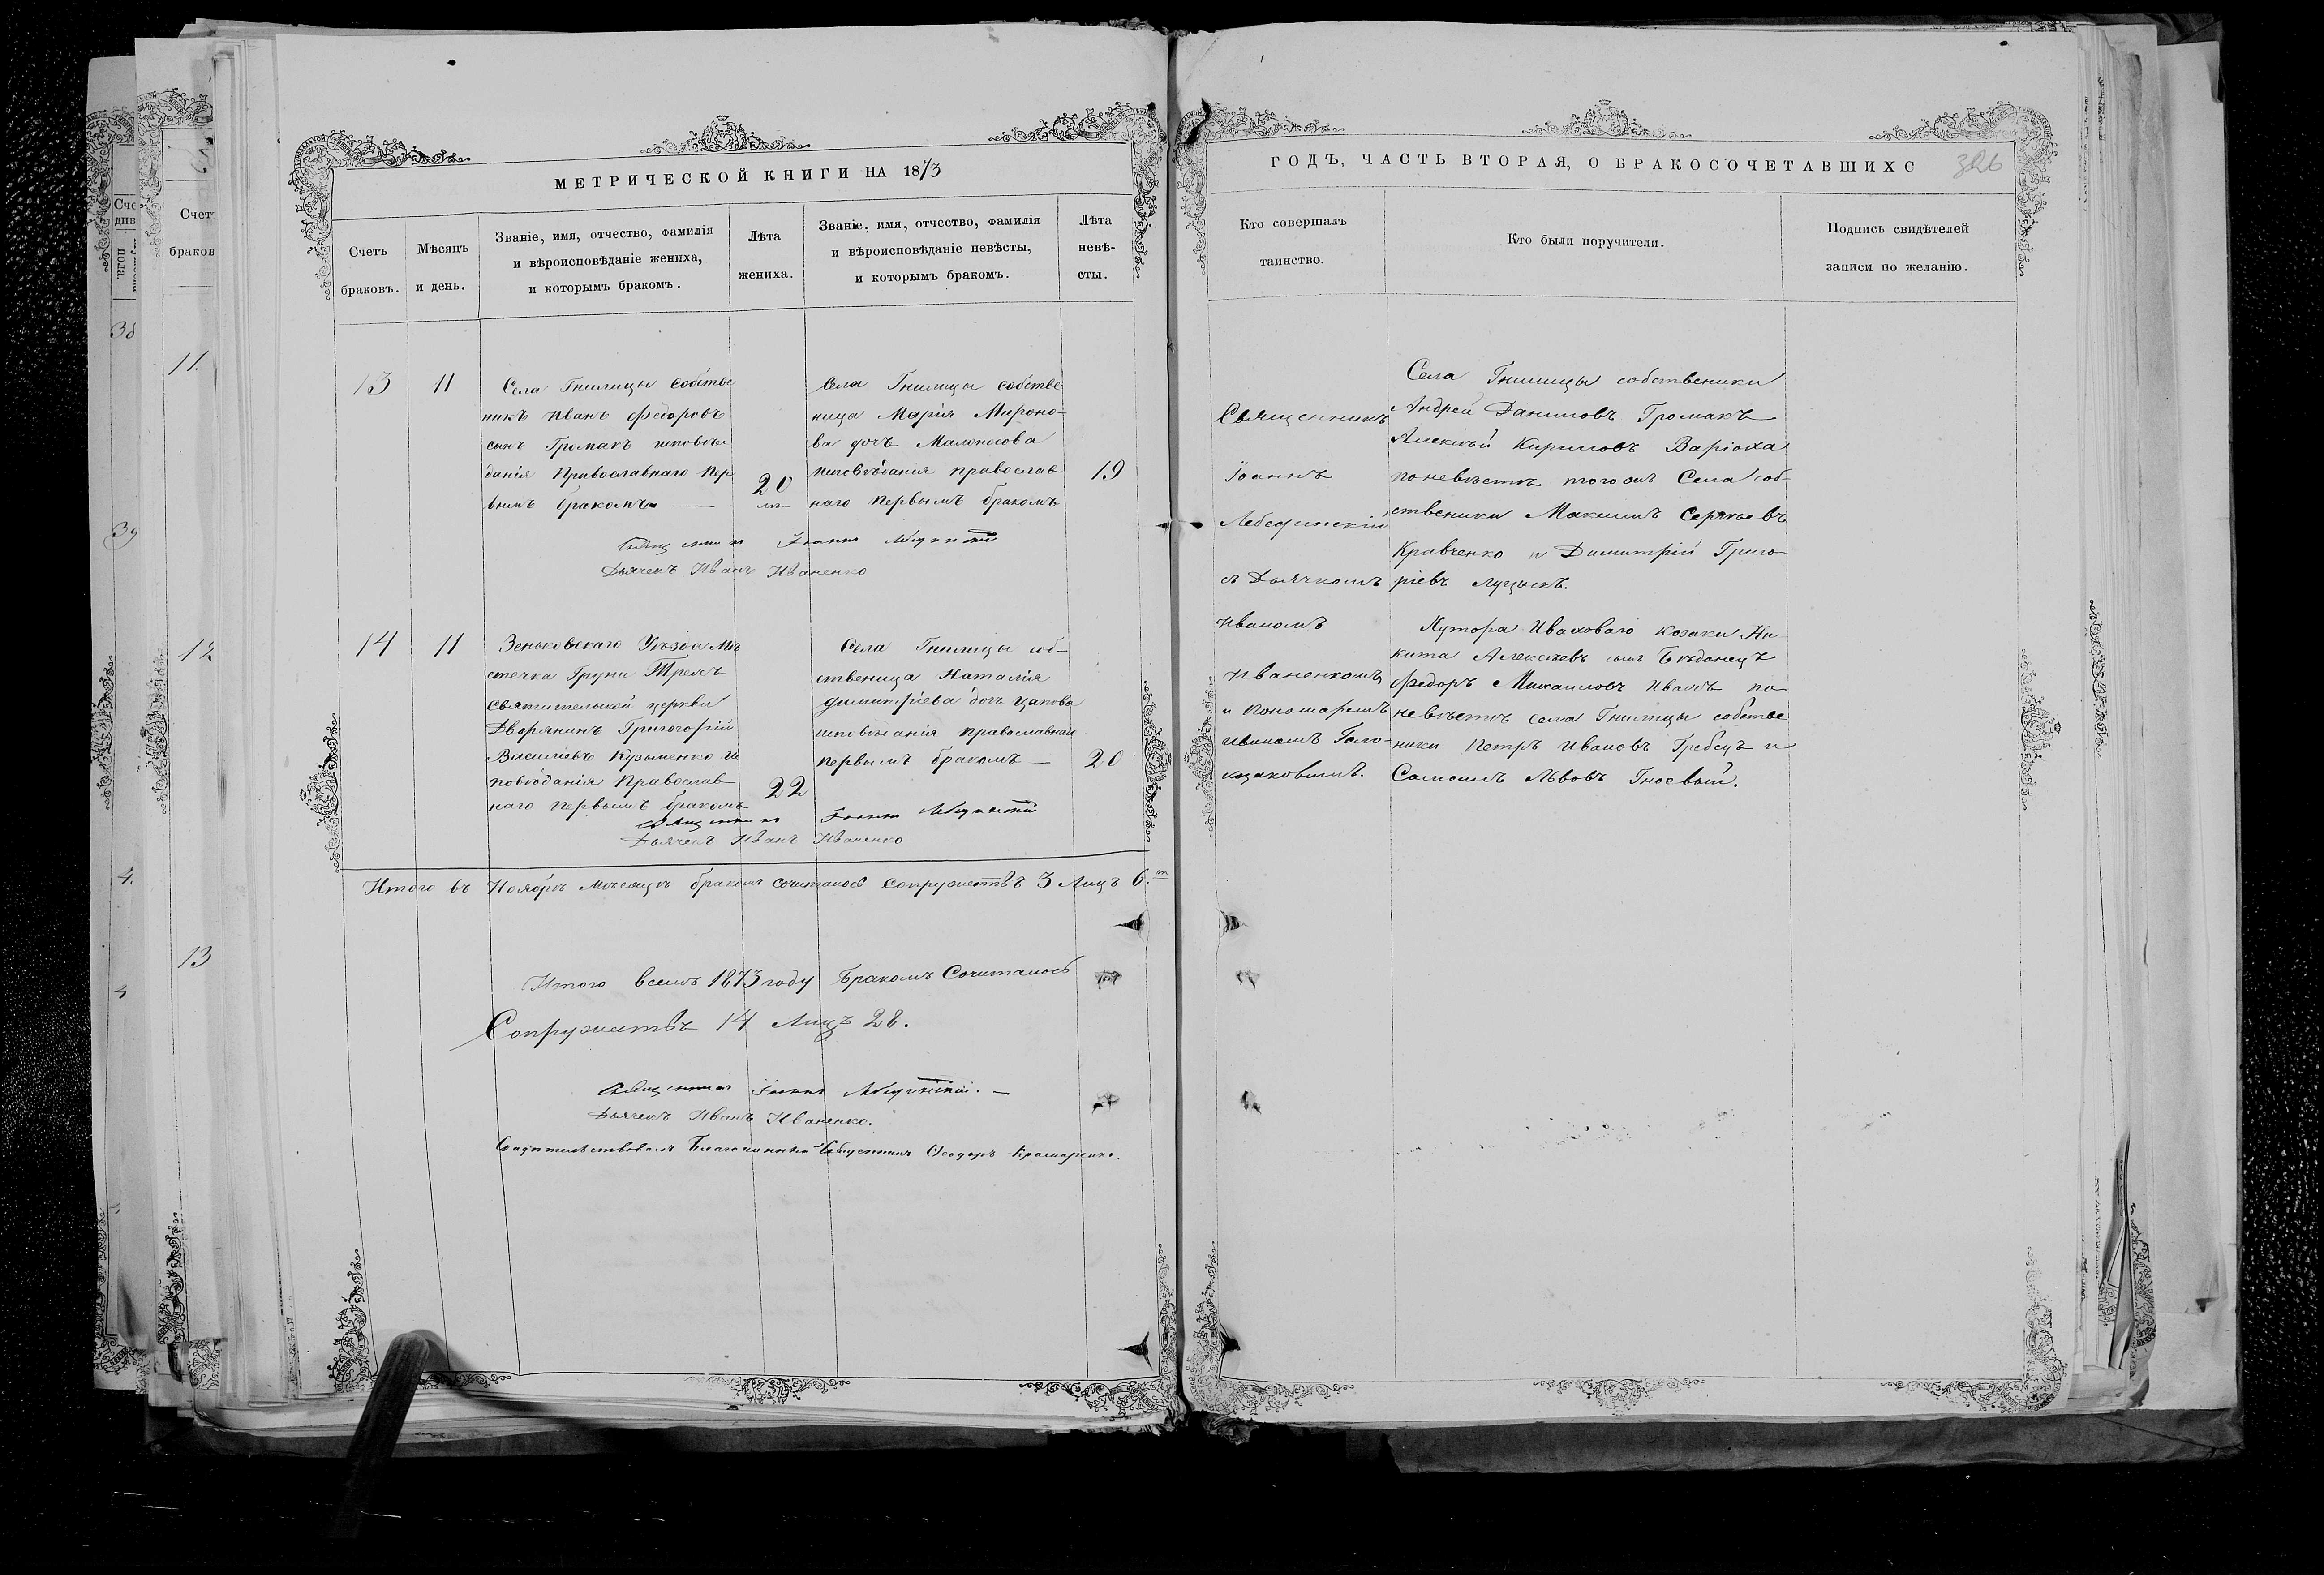 МЕТРИЧЕСКОЙ КНИГИ НА 1873
Счетъ браковъ.
Мѣсяцъ и день.
Званіе, имя, отчество, фамилія
и вѣроисповѣданіе жениха,
и которымъ бракомъ.
Лѣта
жениха.
Званіе, имя, отчество, фамилія
и вѣроисповѣданіе невѣсты,
и которымъ бракомъ.
Лѣта
невѣ-
сты.
13
11
Села Гнилицы собстве
никъ Иванъ Федоровъ
сынъ Громакъ исповѣ
данія Православнаго пер
вымъ бракомъ
20
Села Гнилицы собстве
ница Марія Мироно-
ва дочь Малоносова
исповѣданія православ
наго первымъ бракомъ
19
Священникъ Іоаннъ Лебединскій
Дьячекъ Иванъ Иваненко
14
11
Зеньковскаго Уѣзда Мѣ
стечка Груни Трехъ
святительской церкви
Дворянинъ Григорій
Васильевъ Кузьменко ис
повѣданія Православ
наго первымъ бракомъ
22
Села Гнилицы соб-
ственица Наталія
Димитріева дочь Цапова
исповѣданія православнаго
первымъ бракомъ —
20
Священникъ Іоаннъ Лебединскій
Дьячекъ Иванъ Иваненко
Итого въ Ноябрѣ Мѣсяцѣ бракомъ сочиталось сопружествъ 3 Лицъ 6.
Итого всемъ 1873 году Бракомъ Сочиталось
Сопружествъ 14 Лицъ 28.
Священникъ Іоаннъ Лебединскій. —
Дьячекъ Иванъ Иваненко.
Свидѣтельствовалъ Благочинный Священникъ Ѳеодоръ
ГОДЪ, ЧАСТЬ ВТОРАЯ, О БРАКОСОЧЕТАВШИХС
326
Кто совершалъ
таинство.
Кто были поручители.
Подпись свидѣтелей
записи по желанію.
Священникъ
Іоаннъ
Лебединскій
съ Дьячкомъ
Иваномъ
Иваненкомъ
и Пономаремъ
Иваномъ Голо-
Села Гнилицы собственики
Андрей Даниловъ Громакъ
Алексѣй Кириловъ Варіоха
по невѣстѣ того жъ Села соб-
ственики Максимъ Сергѣевъ
Кравченко и Димитрій Григо-
ріевъ Луцыкъ.
Хутора Иваховаго козаки Ни
кита Алексѣевъ сынъ Бѣдонецъ
Федоръ Михаиловъ Ивахъ по
невѣстѣ села Гнилицы собстве
ники Петръ Ивановъ Гребецъ и
Самоилъ Львовъ Гноевый.
Счет
браков
11.
12
13